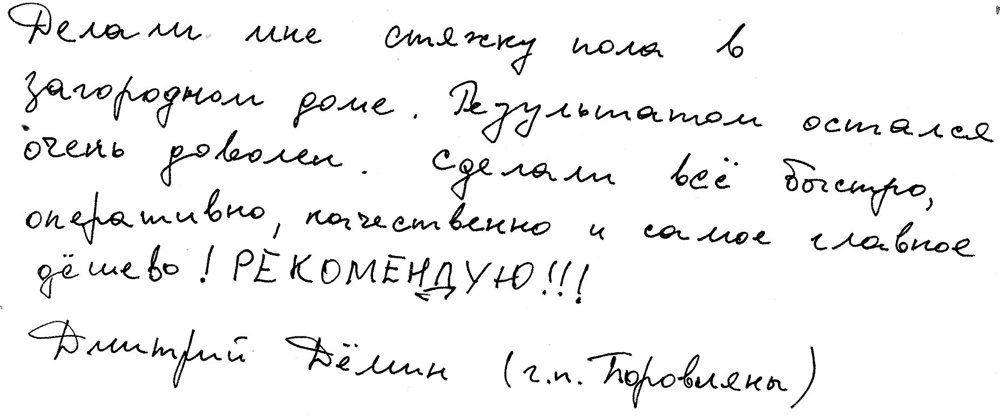 Делали мне стяжку пола в
загородном доме. Результатом остался
очень доволен. Сделали всё быстро,
оперативно, качественно и самое главное
дёшево! РЕКОМЕНДУЮ!!!
Дмитрий Дёмин (г.п. Боровляны)